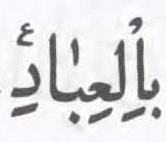 بِالْعِبٰادِ ع